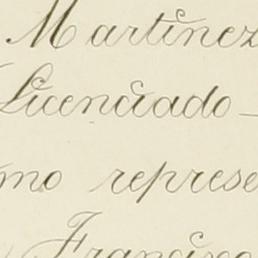 Martinez
Licenciado –
mo represe
Francisco